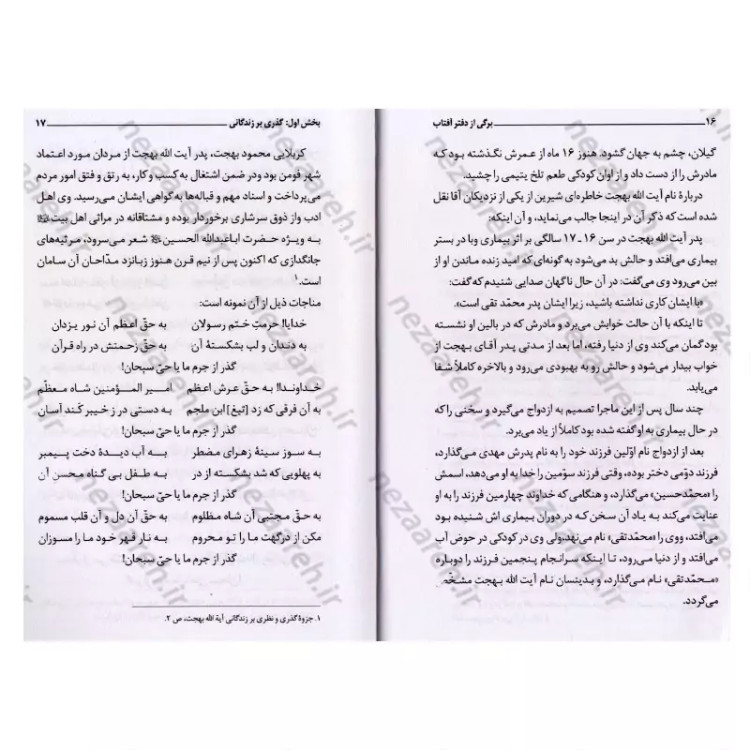 ۱۶ برگی از دفتر آفتاب
گیلان، چشم به جهان گشود. هنوز ۱۶ ماه از عمرش نگذشته بود که
مادرش را از دست داد و از اوان کودکی طعم تلخ یتیمی را چشید.
دربارهٔ نام آیت الله بهجت خاطره‌ای شیرین از یکی از نزدیکان آقا نقل
شده است که ذکر آن در اینجا جالب می‌نماید، و آن اینکه:
پدر آیت الله بهجت در سن ۱۶ ـ ۱۷ سالگی بر اثر بیماری وبا در بستر
بیماری می‌افتد و حالش بد می‌شود به گونه‌ای که امید زنده ماندن او از
بین می‌رود وی می‌گفت: در آن حال ناگهان صدایی شنیدم که گفت:
«با ایشان کاری نداشته باشید، زیرا ایشان پدر محمّد تقی است».
تا اینکه با آن حالت خوابش می‌برد و مادرش که در بالین او نشسته
بود گمان می‌کند وی از دنیا رفته، اما بعد از مدتی پدر آقای بهجت از
خواب بیدار می‌شود و حالش رو به بهبودی می‌رود و بالاخره کاملاً شفا
می‌یابد.
چند سال پس از این ماجرا تصمیم به ازدواج می‌گیرد و سخنی را که
در حال بیماری به او گفته شده بود کاملاً از یاد می‌برد.
بعد از ازدواج نام اوّلین فرزند خود را به نام پدرش مهدی می‌گذارد،
فرزند دوّمی دختر بوده، وقتی فرزند سوّمین را خدا به او می‌دهد، اسمش
را «محمّدحسین» می‌گذارد، و هنگامی که خداوند چهارمین فرزند را به او
عنایت می‌کند به یاد آن سخن که در دوران بیماری اش شنیده بود
می‌افتد، و وی را «محمّدتقی» نام می‌نهد، ولی وی در کودکی در حوض آب
می‌افتد و از دنیا می‌رود، تا اینکه سرانجام پنجمین فرزند را دوباره
«محمّدتقی» نام می‌گذارد، و بدینسان نام آیت الله بهجت مشخّص
می‌گردد.
بخش اول: گذری بر زندگانی ۱۷
کربلایی محمود بهجت، پدر آیت الله بهجت از مردان مورد اعتماد
شهر فومن بود و در ضمن اشتغال به کسب و کار، به رتق و فتق امور مردم
می‌پرداخت و اسناد مهم و قباله‌ها به گواهی ایشان می‌رسید. وی اهل
ادب و از ذوق سرشاری برخوردار بوده و مشتاقانه در مراثی اهل بیت
به ویژه حضرت اباعبدالله الحسین شعر می‌سرود، مرثیه‌های
جانگدازی که اکنون پس از نیم قرن هنوز زبانزد مدّاحان آن سامان
است.۱
مناجات ذیل از آن نمونه است:
خدایا! حرمتِ ختم رسولان به حقّ اعظم آن نور یزدان
به دندان و لب بشکستهٔ آن به حقّ زحمتش در راه قرآن
گذر از جرم ما یا حیّ سبحان!
خداوندا! به حقّ عرش اعظم امیر المؤمنین شاه معظّم
به آن فرقی که زد [تیغ] ابن ملجم به دستی در ز خیبر کَند آسان
گذر از جرم ما یا حیّ سبحان!
به سوز سینهٔ زهرای مضطر به آب دیدهٔ دخت پیمبر
به پهلویی که شد بشکسته از در به طفل بی گناه محسن آن
گذر از جرم ما یا حیّ سبحان!
به حقّ مجتبی آن شاه مظلوم به حقّ آن دل و آن قلب مسموم
مکن از درگهت ما را تو محروم به نار قهر خود ما را مسوزان
گذر از جرم ما یا حیّ سبحان!
۱. جزوهٔ گذری و نظری بر زندگانی آیة الله بهجت، ص ۲.
nezaareh.ir
nezaareh.ir
nezaareh.ir
nezaareh.ir
nezaareh.ir
nezaareh.ir